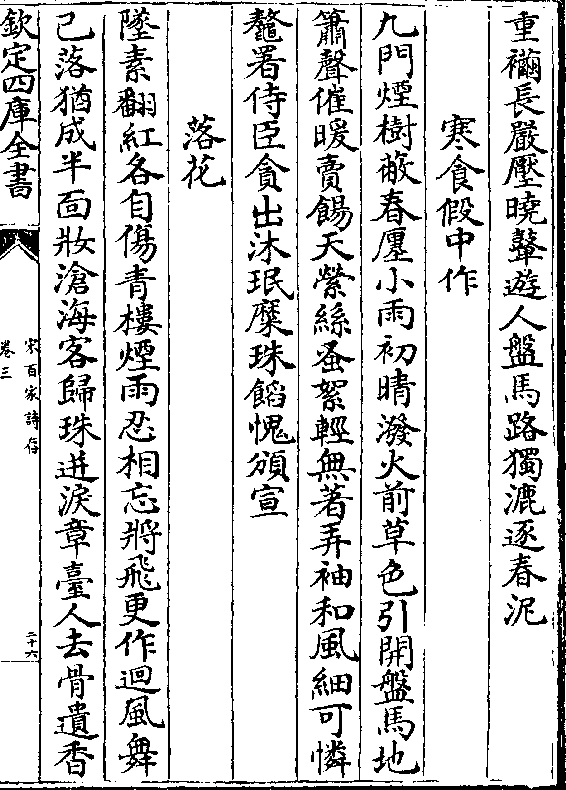 重襺長嚴壓曉鼙遊人盤馬路獨漉逐春泥
寒食假中作
九門煙樹蔽春㕓小雨初晴潑火前草色引開盤馬地
簫聲催暖賣餳天縈絲蚤絮輕無著弄袖和風細可憐
鼇署侍臣貪出沐珉糜珠餡愧頒宣
落花
墜素翻紅各自傷青樓煙雨忍相忘將飛更作迴風舞
已落猶成半面妝滄海客歸珠迸淚章臺人去骨遺香
欽定四庫全書
宋百家詩存
卷三
二十六